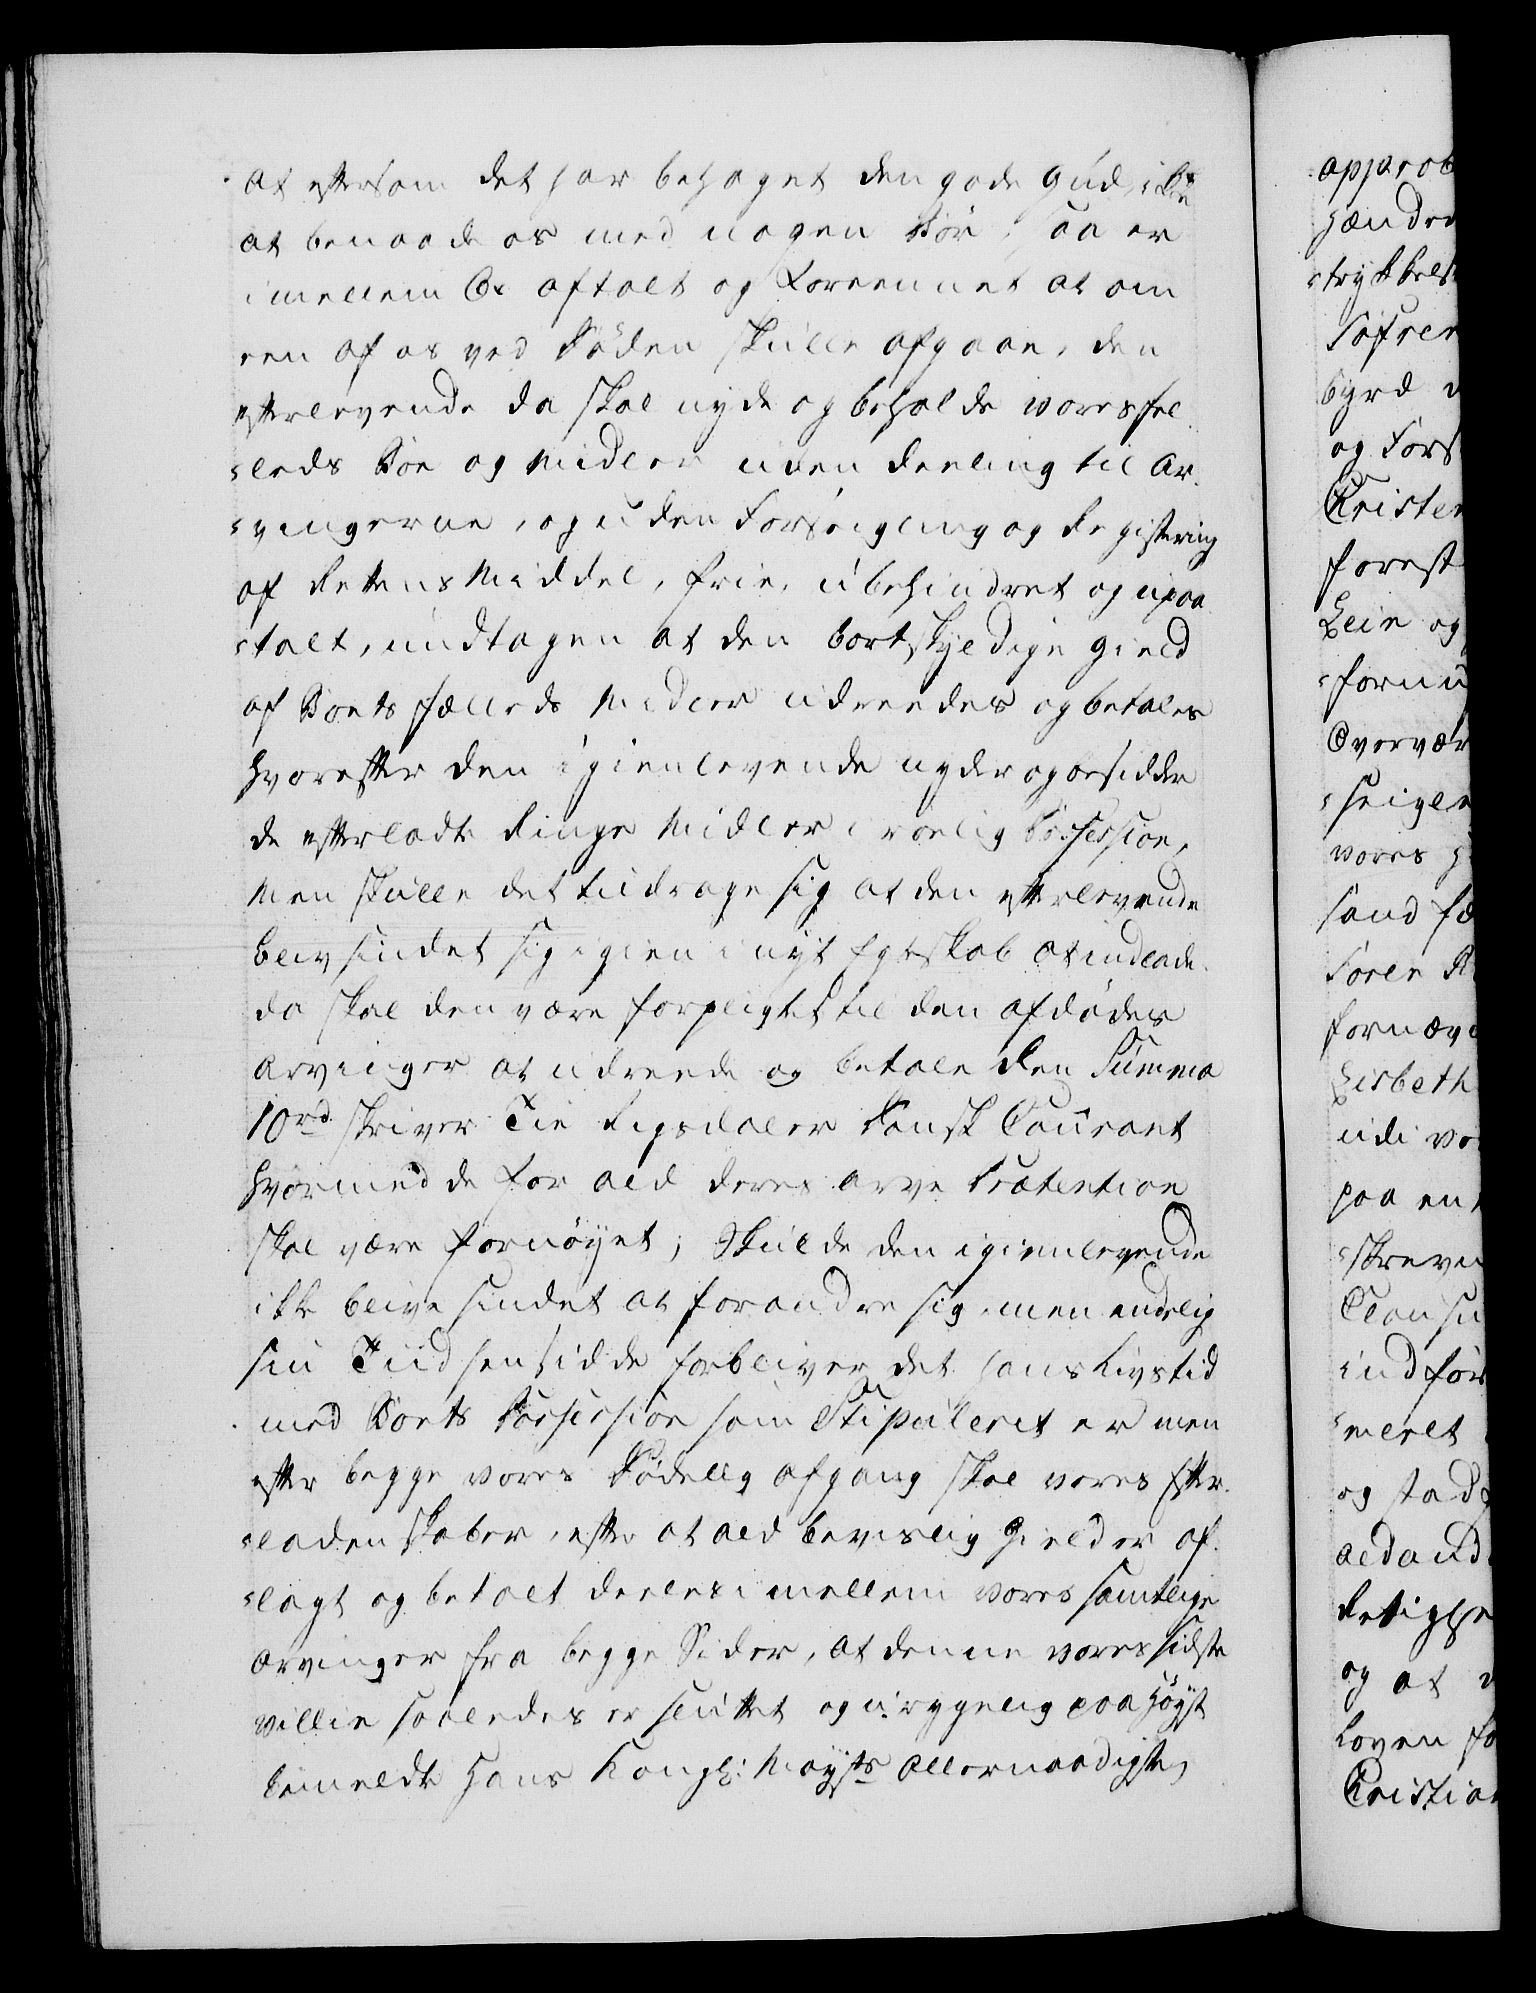 at eftersom det har behaget den gode Gud, ikke
at benaade os med nogen Bør, saa er
imellem Os aftalt og Foreenet at om
een af os ved Døden skulle afgaae, den
efterlevende da skal nyde og beholde vores fel
leds Boe og Midler uden deeling til Ar
vingerne, og uden Forseigling og Registering
af Rettens Middel, frie, ubehindret og upaa
talt, undtagen at den bortskyldige Gield
af Boets fælleds Midler udreedes og betales
hvorefter den igienlevende nyder og besidder
de efterladte Ringe Midler i roelig Possession,
Men skulle det tildrage sig at den efterlevende
blev sindet sig igien i nyt Egteskab at indlade,
da skal den være forpligtet til den afdødes
Arvinger at udreede og betale den Summa
10rd skriver Tie Rigsdaler Dansk Courant
hvormed de for ald deres arve Prætention
skal være fornøyet; Skulde den igienlevende
ikke blive sindet at forandre sig, men endelig
sin Tiid hensidde forbliver det hans Livstid
med Boets Possession som Stipuleret er men
efter begge vores Dødelig afgang skal vores Efter
ladenskaber, efter at ald bevislig Gield er af
lagt og betalt deeles imellem vores samtlige
Arvinger fra begge Sider, at denne vores sidste
villie saaledes er sluttet og urygelig paa Høyst
bemeldte Hans Kongl: Mayts Allernaadigste

approb
hændre
trykkels
Søfren
byrd
og Fors
Cristen
forest
Leie og
fornu
Overvær
seigle
vores
sand fæ
Søren
fornæv
Lisbeth
udi vo
paa en
skreve
Clausu
indfør
meret
og stad
ald and
Retighe
og at
Loven fo
Cristian